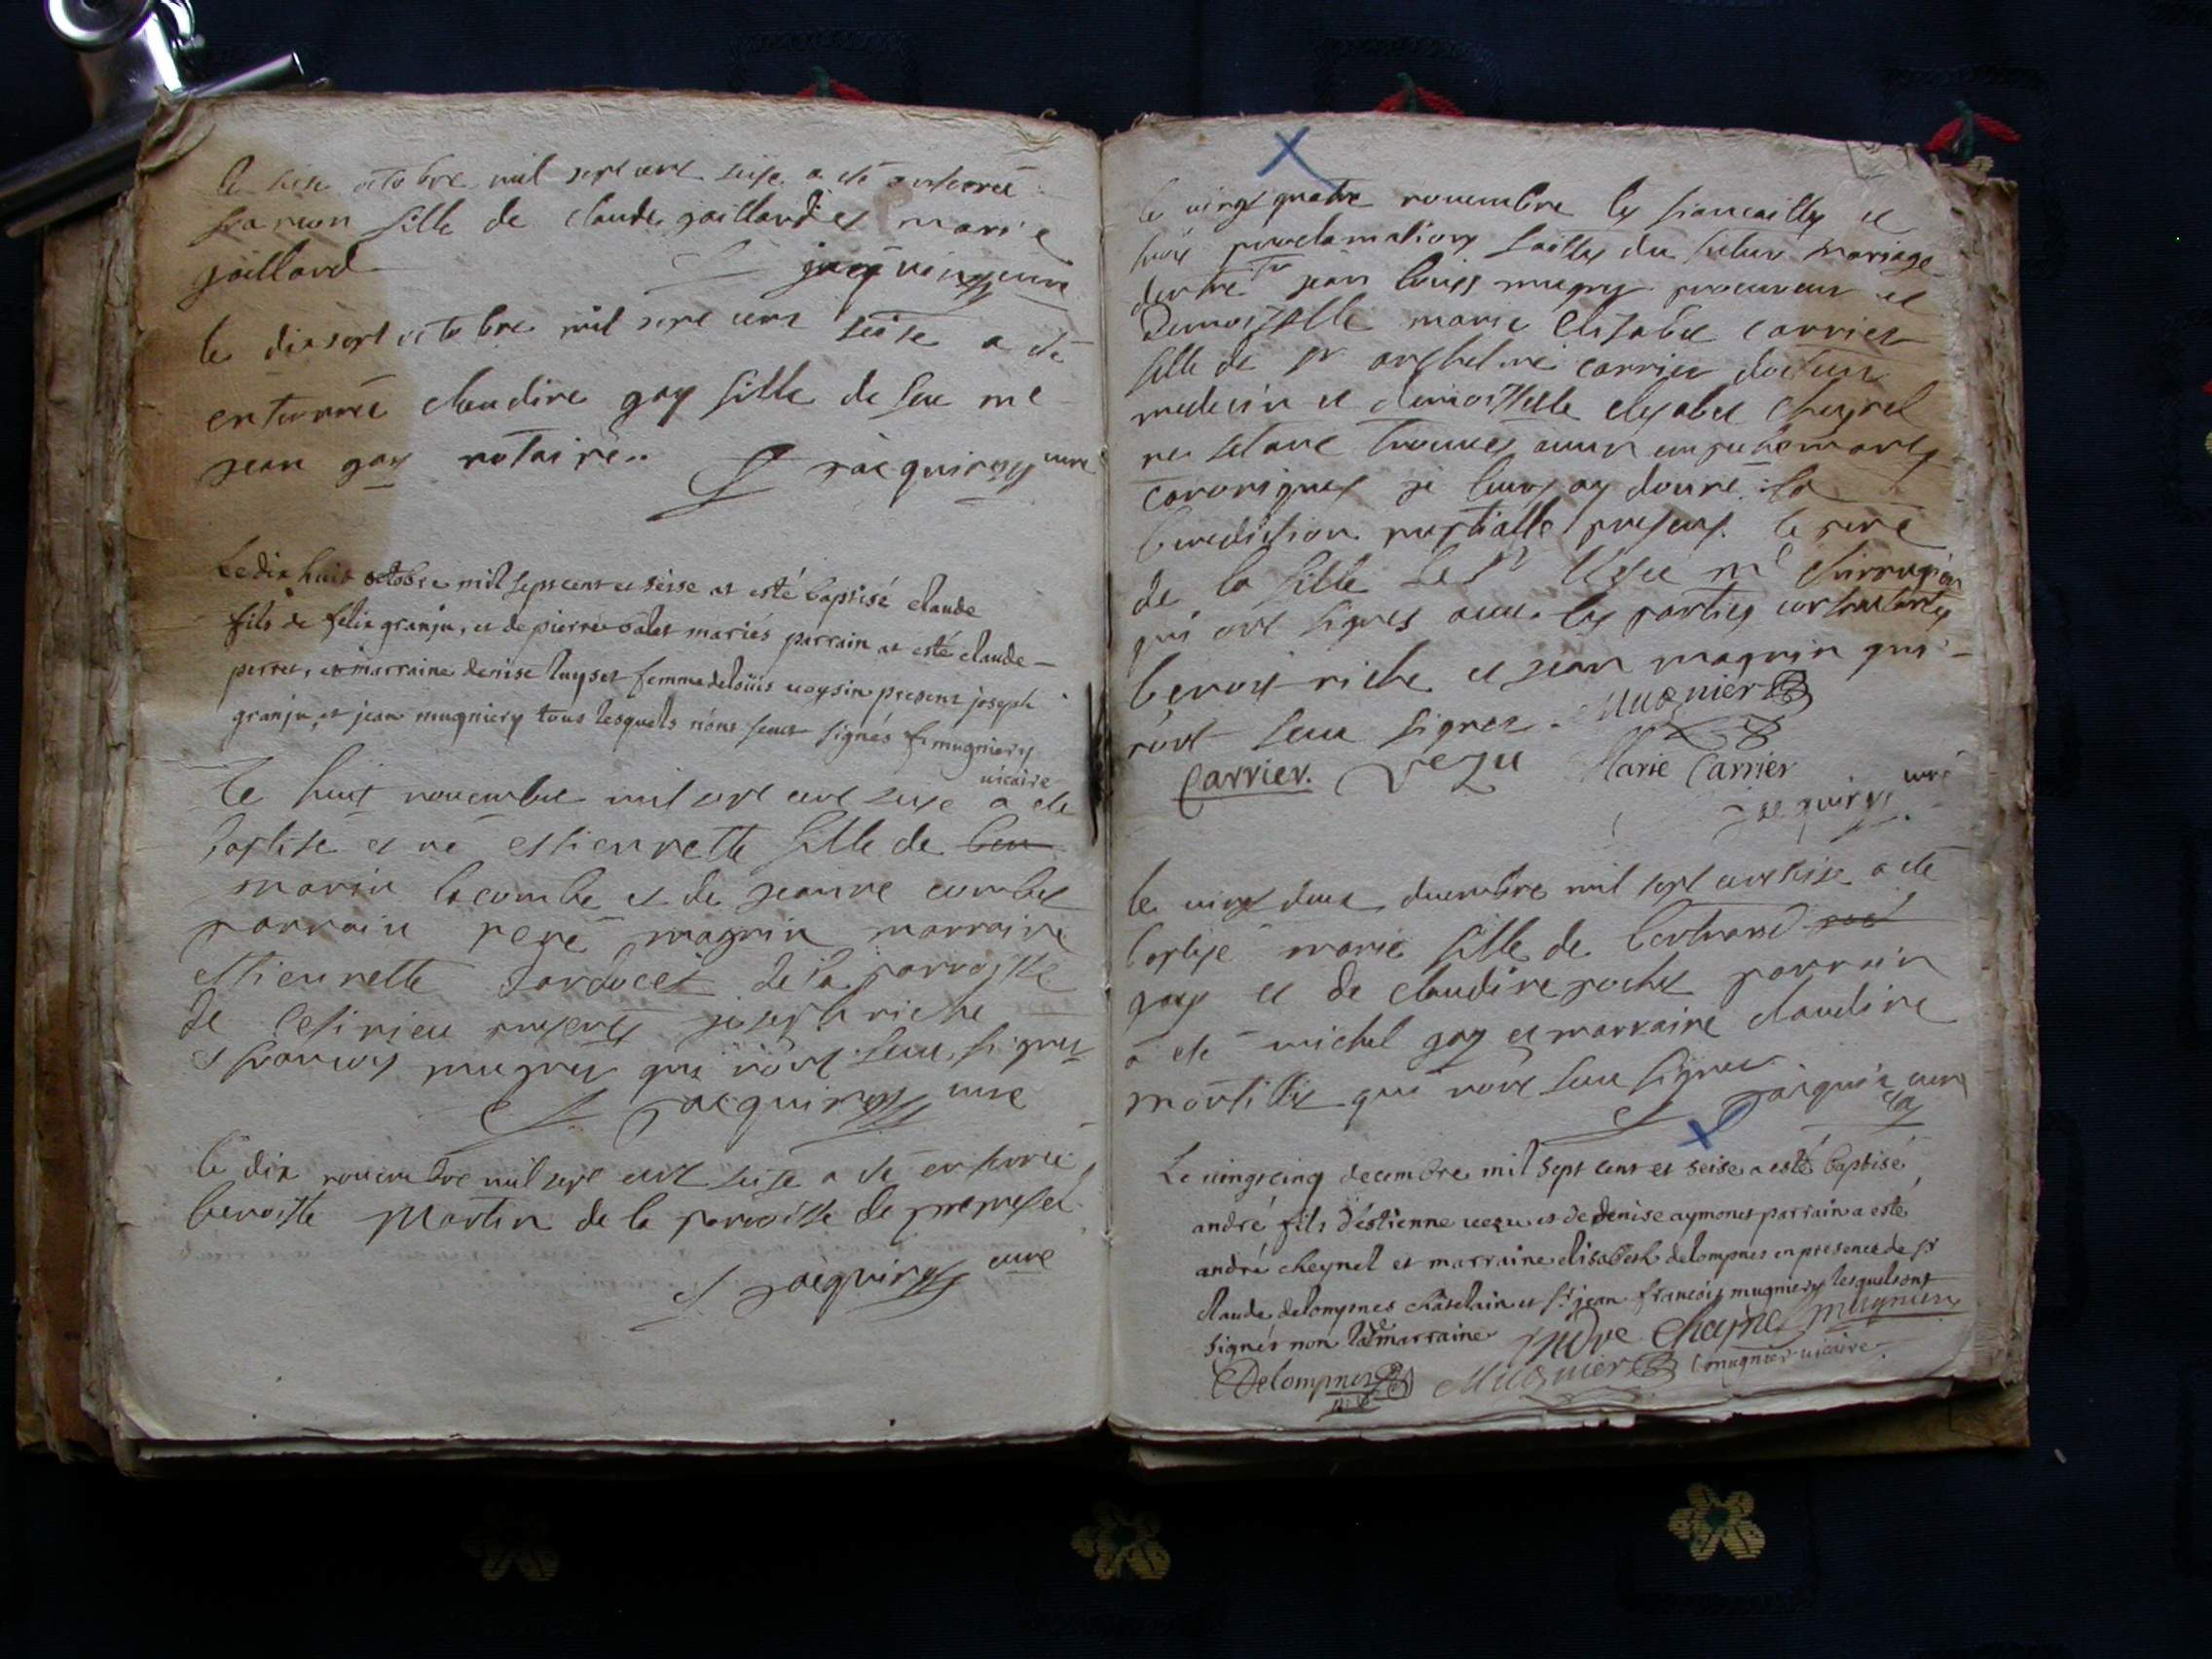 le seise octobre mil sept cent seise a eté enterreé
fille de claude gaillard et marie
gaillard jacquin cure
le dix sept octobre mil sept cent seise a eté
enterreé claudine gay fille de feu me
jean gay notaire jacquin cure
Le dix huit octobre mil sept cent et seise at esté baptisé claude
fils de felix granju, et de pierre salet mariés parrain at esté claude
perret, et marraine denise luyset femme de loüis voysin present joseph
granju, et jean mugniery tous lesquels n'ont sceut signés f mugniery
vicaire
le huit novembre mil sept cent seise a ete
baptisé et né estiennette fille de ben
marin lacombe et de jeanne combet
parrain rené magnin marraine
estiennette dardocet de la parroisse
de presents joseph riche
et francois mugnier qui n'ont seu signer
jacquin cure
le dix novembre mil sept cent seise a eté enterreé
benoiste martin de la parroisse de
jacquin cure
X
le vingt quatre novembre les fiancailles et
trois proclamations faittes du futur mariage
dentre sr jean louis mugnier procureur et
Demoiselle marie Elisabet carrier
fille de sr anthelme carrier docteur
medecin et demoiselle elisabet cheynel
ne setant trouves aucun empechements
canoniques je leurs ay donné la
benediction nuptialle presents le pere
de la fille le sr Vezu me chirrugien
qui ont signes avec les parties contractantes
benoit riche et jean magnin qui
n'ont seu signer. Mugnier
Carrier. Vezu Marie Carrier
jacquin curé
le vingt deux decembre mil sept cent seise a eté
baptisé marie fille de bertrand
gay et de claudine rochet parrain
a eté michel gay et marraine claudine
qui n'ont seu signer
jacquin cure
X
Le vingt cinq decembre mil sept cent et seise a esté baptisé
andré fils d'estienne vezu et de denise aymonet parrain a esté
andré cheynel et marraine elisabeth delompnes en presence de sr
claude delompnes châtelain et sr jean francois mugniery lesquels ont
signés non lade marraine Andre Cheynel mugnier
Delompnes Mugnier f mugnier vicaire